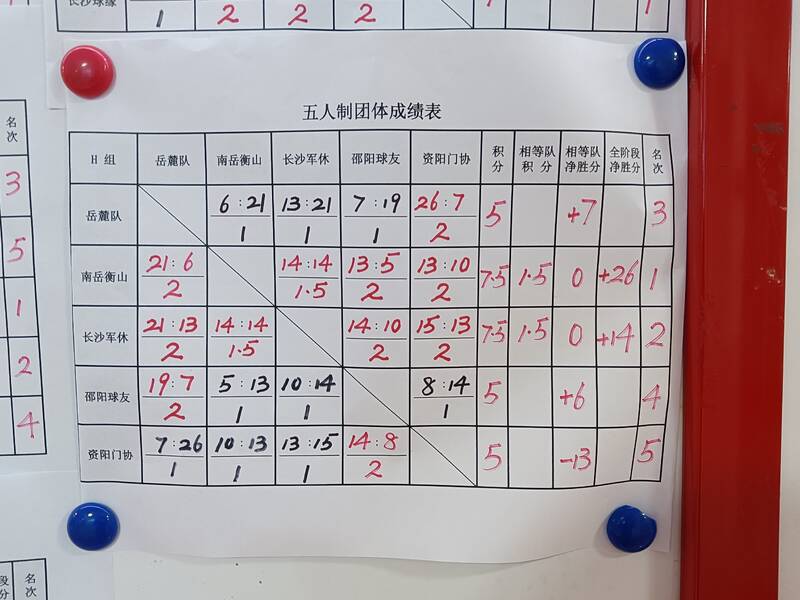 长沙球缘
1 2 2 2 1
名次
3
5
1
2
4
五人制团体成绩表
H 组 岳麓队 南岳衡山 长沙军休 邵阳球友 资阳门协 积分 相等队积分 相等队净胜分 全阶段净胜分 名次
岳麓队 6:21 13:21 7:19 26:7 5 +7 3
1 1 1 2
南岳衡山 21:6 14:14 13:5 13:10 7.5 1.5 0 +26 1
2 1.5 2 2
长沙军休 21:13 14:14 14:10 15:13 7.5 1.5 0 +14 2
2 1.5 2 2
邵阳球友 19:7 5:13 10:14 8:14 5 +6 4
2 1 1 1
资阳门协 7:26 10:13 13:15 14:8 5 -13 5
1 1 1 2
段分 名次